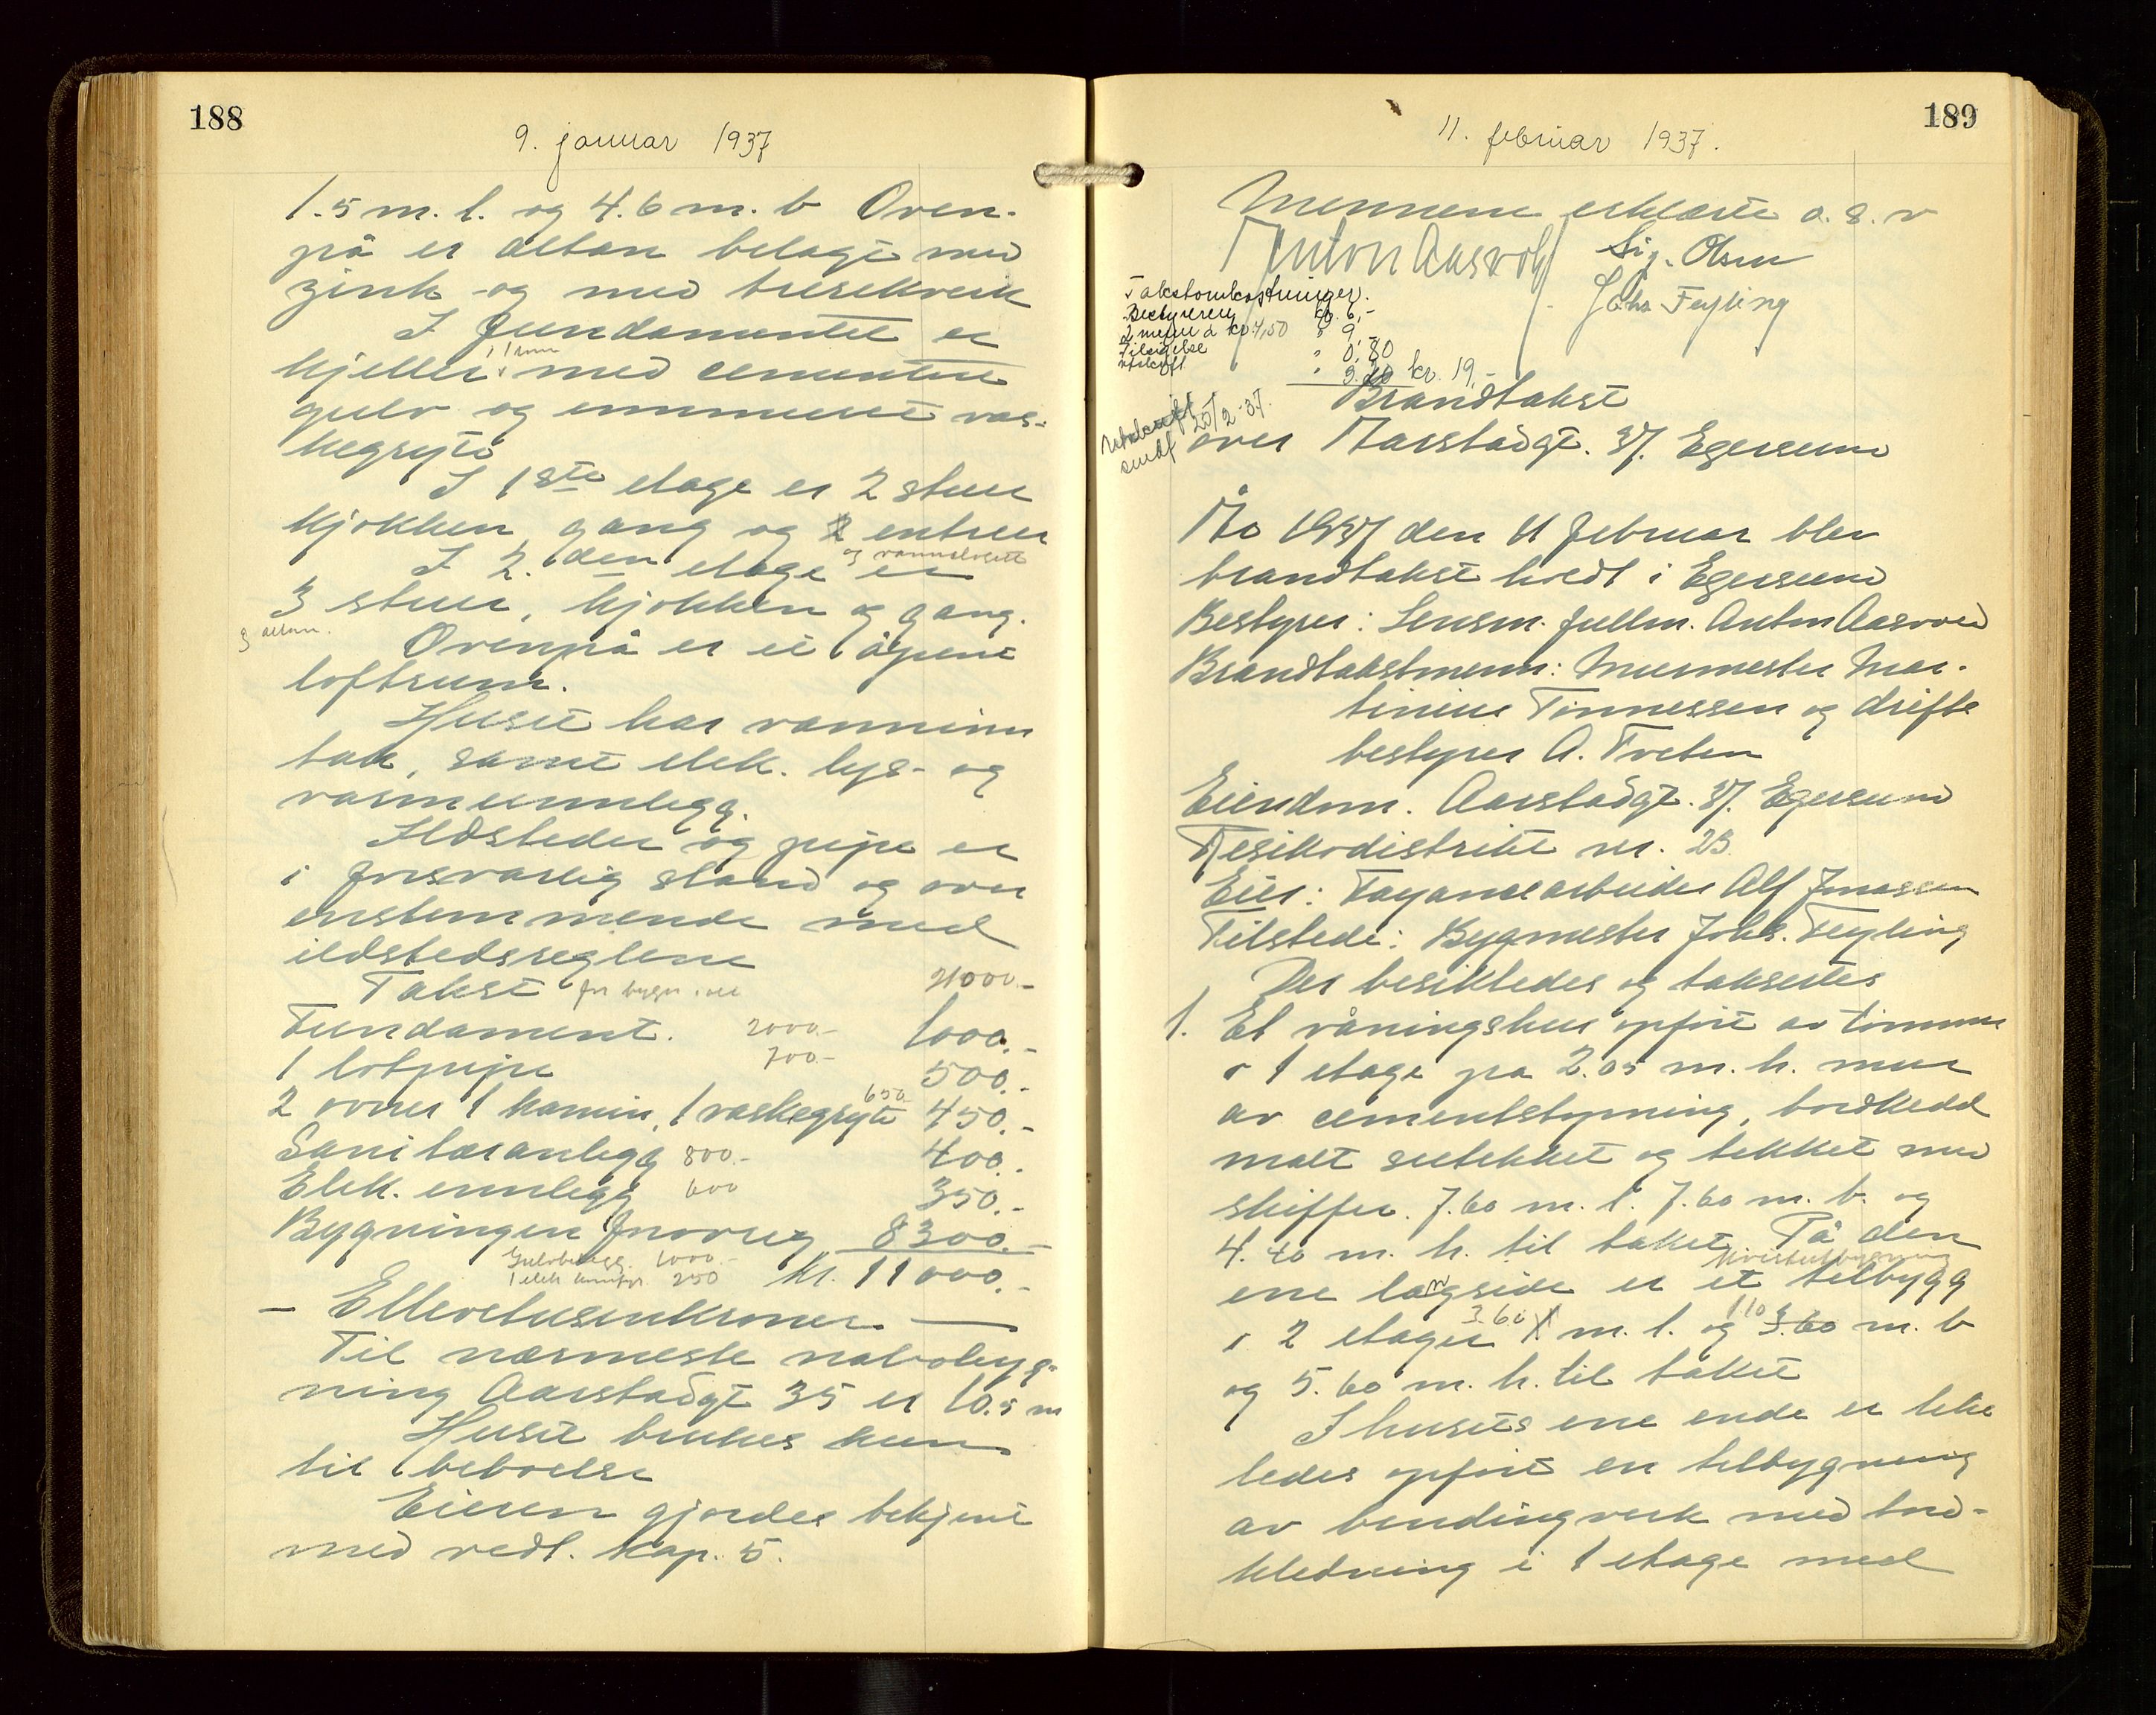 188
9. januar 1937
1.5 m. l. og 4.6 m. b Oven-
på er altan belagt med
zink og med trerekverk
I fundamentet er
1 rum
kjeller med cementert
gulv og innmuret vas-
kegryte
I 1ste etage er 2 stuer
kjøkken, gang og entree
og vannklosett
I 2. den etage er
3 stuer, kjøkken og gang.
og altan.
Ovenpå er et åpent
loftrum.
Huset har vanninn
tak, samt elek. lys- og
varmeinnlegg.
Ildsteder og pipe er
i forsvarlig stand og over
enstemmende med
ildstedsreglene
Takst for bygn. 21000.-
Fundament. 2000.- 1000.-
1 lotpipe 700.- 500.-
2 ovner 1 kamin, 1 vaskegryte 650 450.-
Sanitæranlegg 800.- 400.-
Elek. innlegg 600 350.-
Bygningen forøvrig 8300.-
Gulvbelegg. 1000.-
1 elek komfyr 250 Kr. 11000.-
— Ellevetusenkroner. —
Til nærmeste nabobyg-
ning Aarstadgt 35 er 10.5 m
Huset brukes kun
til beboelse
Eieren gjordes bekjent
med vedt. kap. 5.
189
11. februar 1937.
Mennene erklærte o. s. v
Anton Aasvold Sig. Olsen
Johs Feyling
Takstomkostninger.
Bestyreren kr. 6,-
2 menn à kr 4,50 " 9,-
Tilsigelse " 0,80
Utskrift " 3.20 kr. 19,-
Utskrift
sendt 25/2-37.
Brandtakst
over Aarstadgt. 37. Egersund
År 1937 den 11 februar blev
brandtakst holdt i Egersund
Bestyrer: Lensm. fullm. Anton Aasvold
Brandtakstmenn: Murmester Mar-
tinius Tønnessen og drifts
bestyrer A. Tveten
Eiendom. Aarstadgt. 37. Egersund
Resikodistrikt nr. 23.
Eier: Fayancearbeider Alf Jonassen
Tilstede: Bygmester Johs. Feyling
Der besiktedes og takseres
1. Et våningshus opført av tømmer
i 1 etage på 2.05 m. h. mur
av cementstøpning, bordkledd
malt sutekket og tekket med
skiffer. 7.60 m. l. 7.60 m. b. og
4.40 m. h. til taket. På den
kvistutbygning
ene langside er et tilbygg
i 2 etager 3.60 m. l. og 1.10 3.60 m. b
og 5.60 m. h. til taket
I husets ene ende er like
ledes opført en tilbygning
av bindingverk med bord-
kledning i 1 etage med